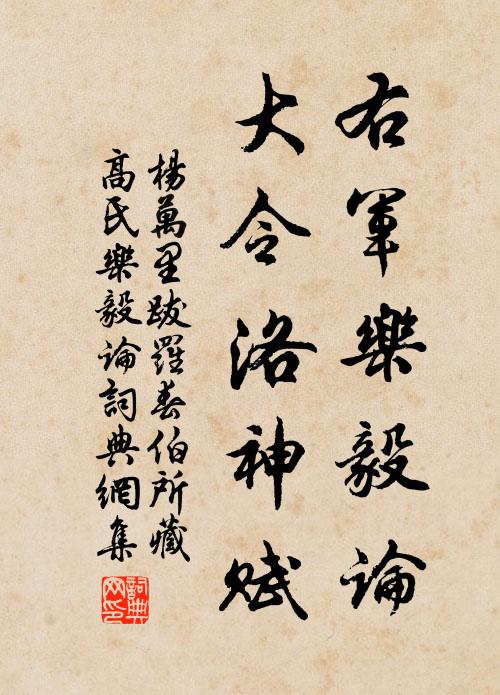 右軍樂毅論
大令洛神赋
楊萬里跋羅春伯所藏
高氏樂毅論詞典網集
詞典網印